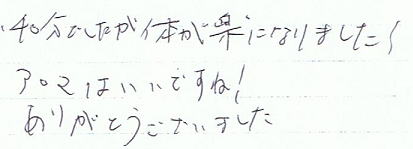 40分でしたが体が楽になりました!
アロマはいいですね!
ありがとうございました